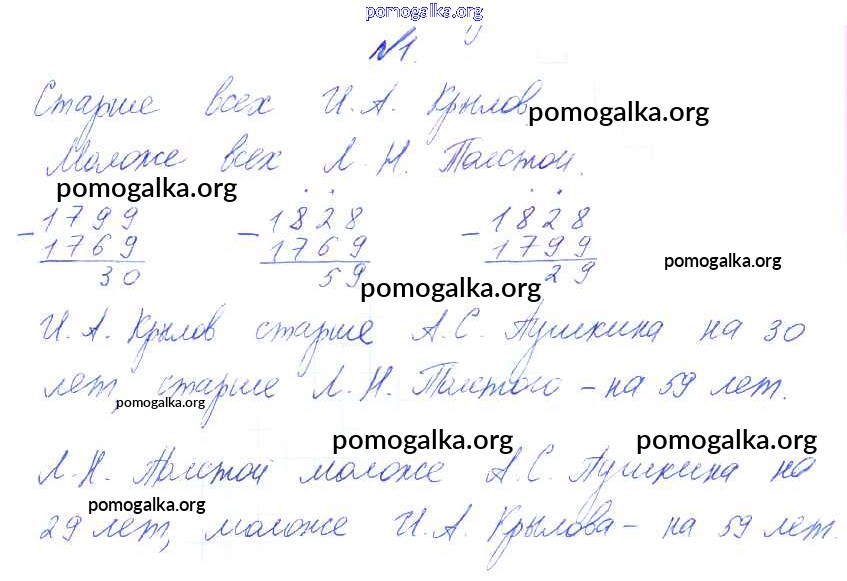 pomogalka.org
№1.
Старше всех И. А. Крылов,
pomogalka.org
Моложе всех Л. Н. Толстой.
pomogalka.org
- 1799 - 1828 - 1828
1769 1769 1799
30 59 29
pomogalka.org
pomogalka.org
И. А. Крылов старше А. С. Пушкина на 30
лет, старше Л. Н. Толстого – на 59 лет.
pomogalka.org
pomogalka.org pomogalka.org
Л. Н. Толстой моложе А. С. Пушкина на
pomogalka.org
29 лет, моложе И. А. Крылова – на 59 лет.